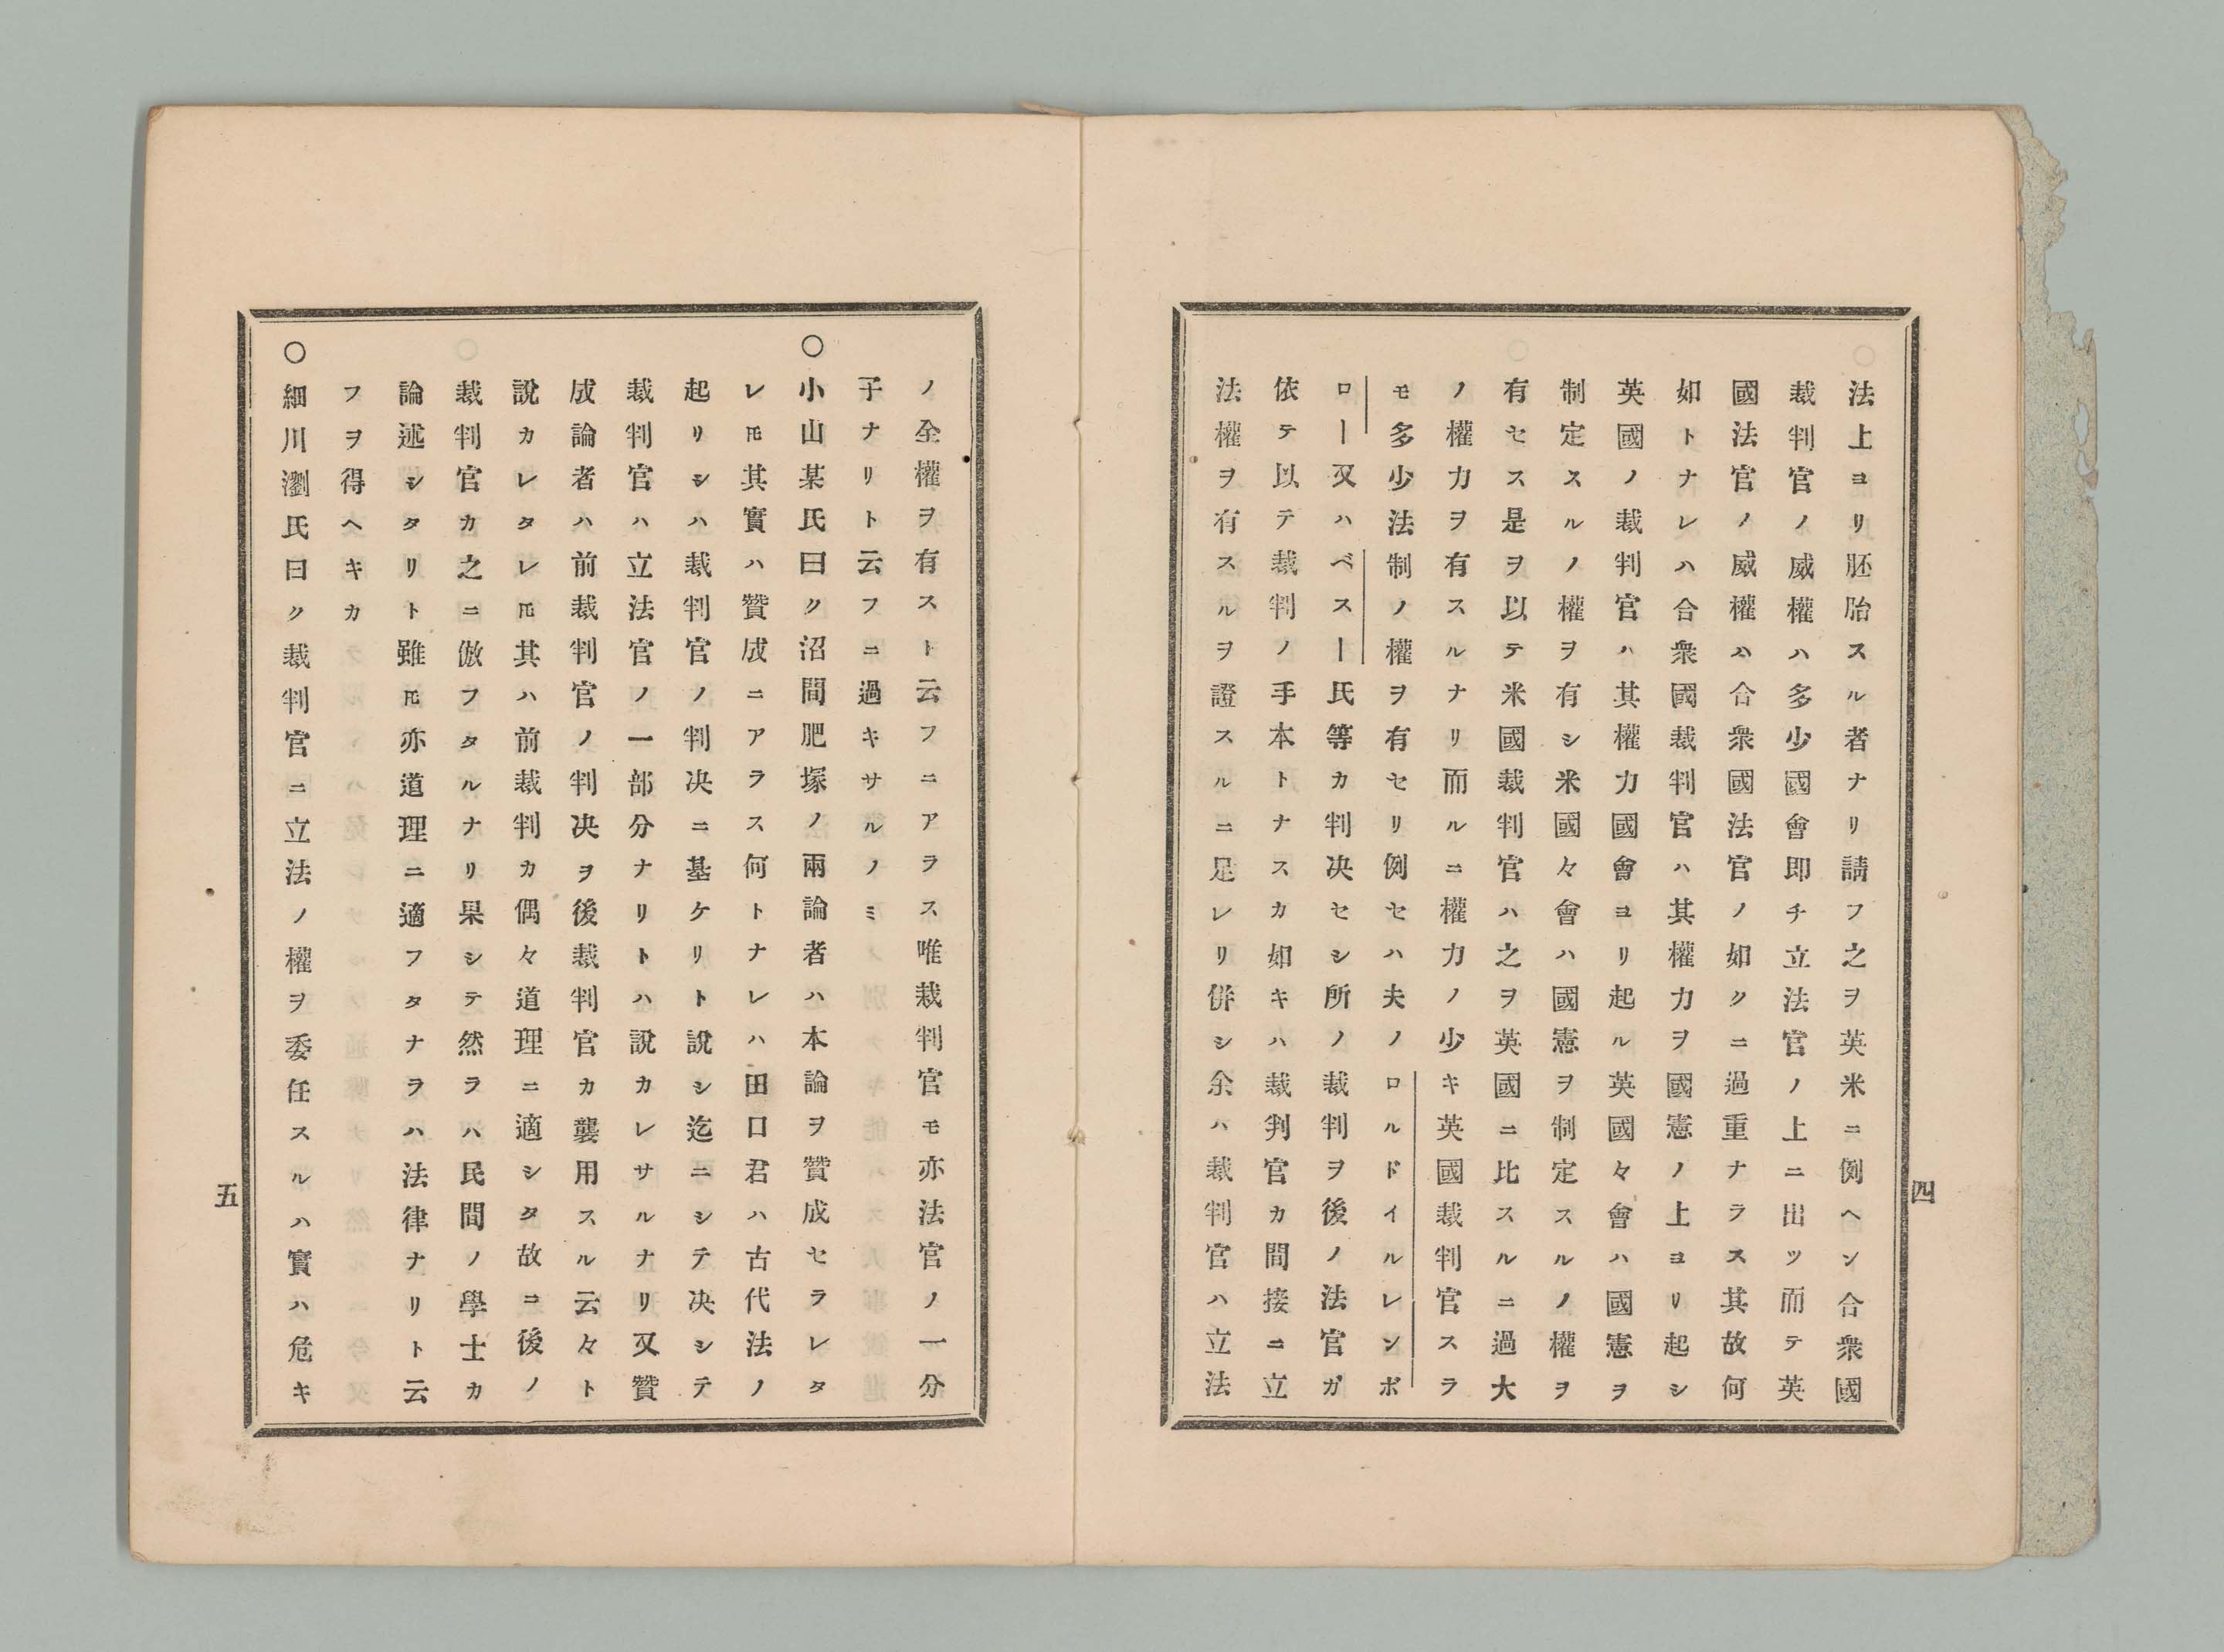 法上ヨリ胚胎スル者ナリ請フ之ヲ英米ニ例ヘン合衆國
裁判官ノ威權ハ多少國會即チ立法官ノ上ニ出ツ而テ英
國法官ノ威權ハ合衆國法官ノ如クニ過重ナラス其故何
如トナレハ合衆國裁判官ハ其權力ヲ國憲ノ上ヨリ起シ
英國ノ裁判官ハ其權力國會ヨリ起ル英國々會ハ國憲ヲ
制定スルノ權ヲ有シ米國々會ハ國憲ヲ制定スルノ權ヲ
有セス是ヲ以テ米國裁判官ハ之ヲ英國ニ比スルニ過大
ノ權力ヲ有スルナリ而ルニ權力ノ少キ英國裁判官スラ
モ多少法制ノ權ヲ有セリ例セハ夫ノロルドイルレンボ
ロー又ハベスー氏等カ判决セシ所ノ裁判ヲ後ノ法官ガ
依テ以テ裁判ノ手本トナスカ如キハ裁判官カ間接ニ立
法權ヲ有スルヲ證スルニ足レリ併シ余ハ裁判官ハ立法
四
ノ全權ヲ有スト云フニアラス唯裁判官モ亦法官ノ一分
子ナリト云フニ過キサルノミ
○小山某氏曰ク沼間肥塚ノ兩論者ハ本論ヲ贊成セラレタ
レ𪜈其實ハ贊成ニアラス何トナレハ田口君ハ古代法ノ
起リシハ裁判官ノ判决ニ基ケリト說シ迄ニシテ决シテ
裁判官ハ立法官ノ一部分ナリトハ說カレサルナリ又贊
成論者ハ前裁判官ノ判决ヲ後裁判官カ襲用スル云々ト
說カレタレ𪜈其ハ前裁判カ偶々道理ニ適シタ故コ後ノ
裁判官カ之ニ倣フタルナリ果シテ然ラハ民間ノ學士カ
論述シタリト雖𪜈亦道理ニ適フタナラハ法律ナリト云
フヲ得ヘキカ
○細川瀏氏曰ク裁判官ニ立法ノ權ヲ委任スルハ實ハ危キ
五